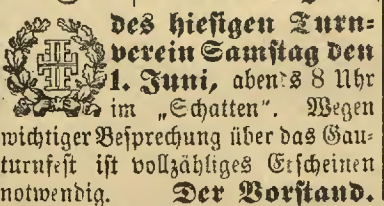 des hiesigen Turn-
verein Samstag den
1. Juni, abends 8 Uhr
im „Schatten“. Wegen
wichtiger Besprechung über das Gau-
turnfest ist vollzähliges Erscheinen
notwendig. Der Vorstand.